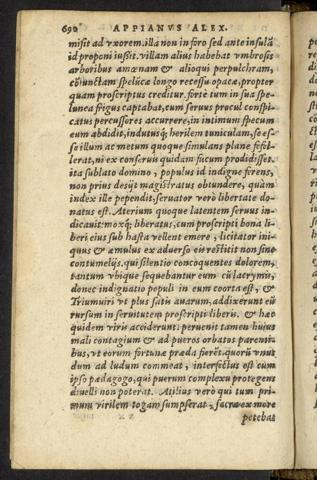 690 APPIANVS ALEX.
misit ad vxorem. illa non in foro sed ante insulã
id proponi iußit. villam alius habebat vmbrosis
arboribus amœnam & alioqui perpulchram,
coniunctam speluncæ longo recessu opacæ, propter
quam proscriptus creditur. fortè tum in sua spe-
lunca frigus captabat, cum seruus procul conspi-
catus percussores accurrere, in intimum specum
eum abdidit, indutusq; herilem tuniculam, se es-
se illum ac metum quoque simulans plane fefel-
lerat, ni ex conseruis quidam fucum prodidisset.
ita sublato domino, populus id indigne ferens,
non prius desijt magistratus obtundere, quàm
index ille pependit, seruator verò libertate do-
natus est. Aterium quoque latentem seruus in-
dicauit: moxq; liberatus, cum proscripti bona li-
beri eius sub hasta vellent emere, licitator ini-
quus & æmulus ex aduerso eis restitit non sine
contumelijs. qui silentio concoquentes dolorem,
tantum vbique sequebantur eum cũ lacrymis,
donec indignatio populi in eum coorta est, &
Triumuiri vt plus satis auarum, addixerunt eũ
rursum in seruitutem proscripti liberis. & hæc
quidem viris acciderunt. peruenit tamen huius
mali contagium & ad pueros orbatos parenti
bus, vt eorum fortunæ præda fierẽt. quorũ vnus
dum ad ludum commeat, interfectus est cum
ipso pædagogo, qui puerum complexu protegens
diuelli non poterat. Atilius verò qui tum pri-
mum virilem togam sumpserat, sacra ex more
petebat